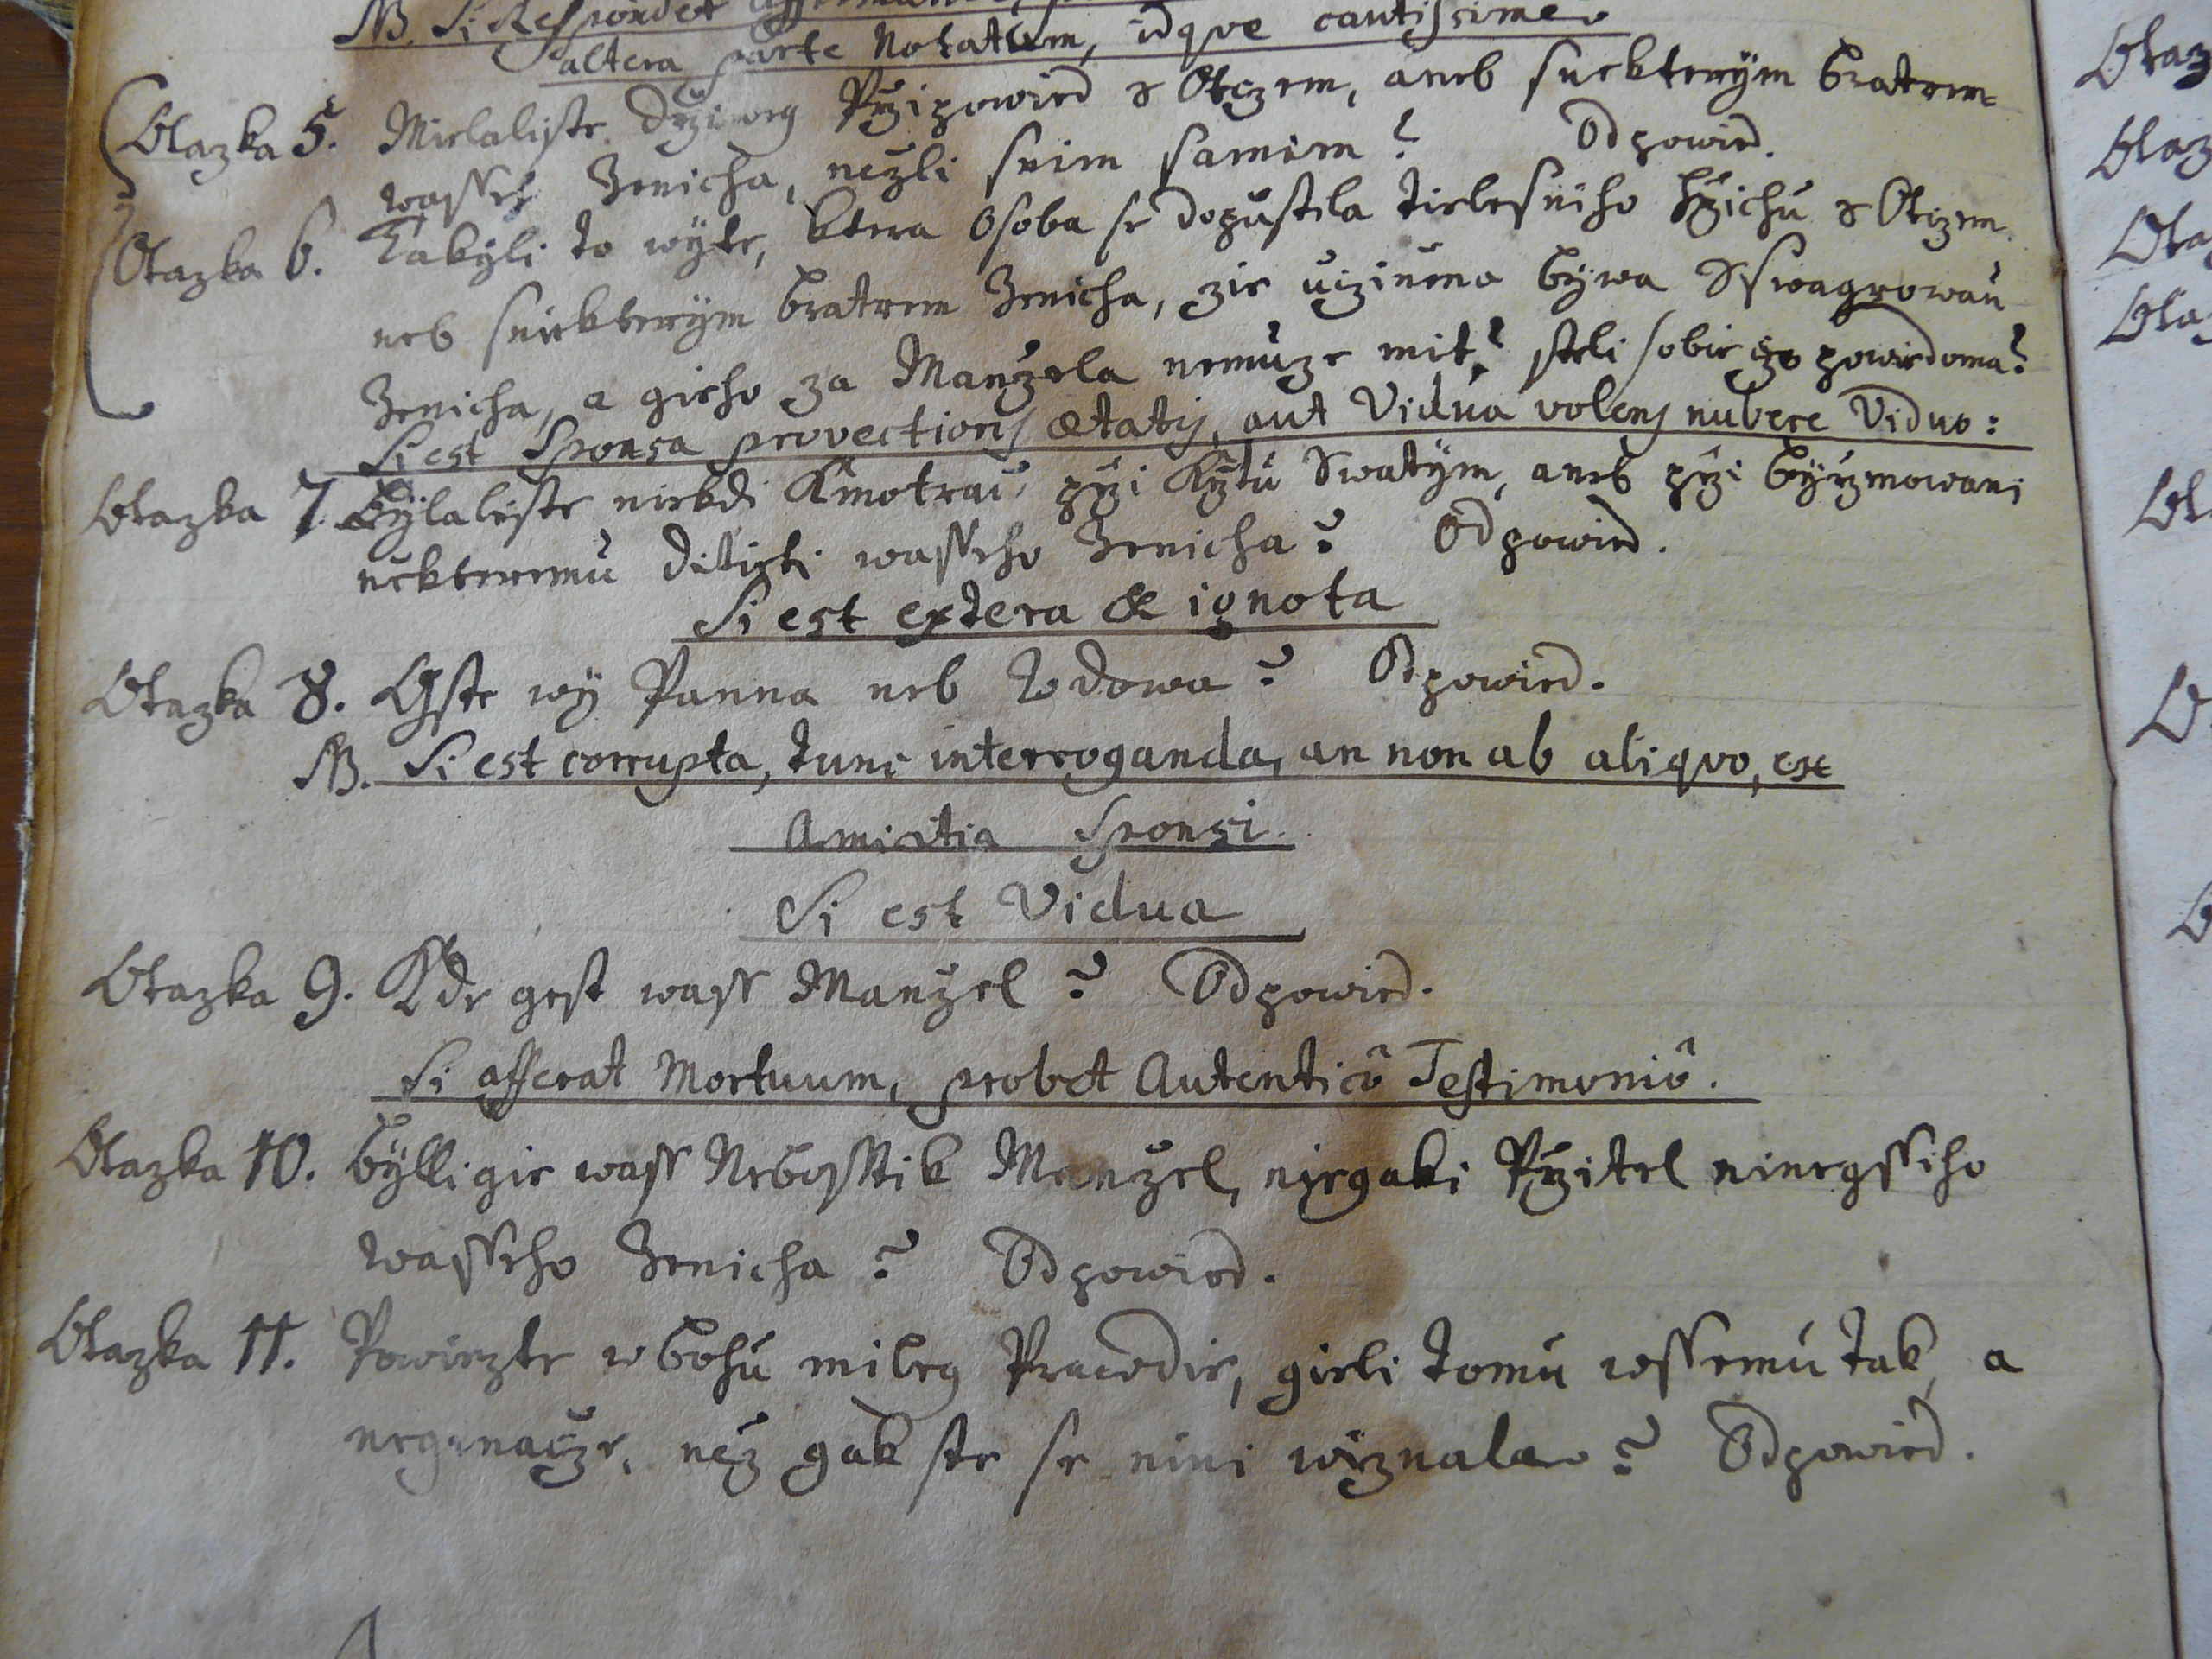 NB. Si Respondet
altera parte Notatum, idque cautissime.
Otazka 5. Mielaliste drziweg Przipowied s Otczem, aneb sniekterym bratrem
wasseho Zenicha, nezli snim samim? Odpowied.
Otazka 6. Takyli to wyte, ktera Osoba se dopustila tielesniho hrzichu s Otczem
neb sniekterym bratrem Zenicha, zie uczinena bywa Sswagrowau
Zenicha, a gieho za Manzela nemuze mit? steli sobie powiedoma?
Si est Sponsa provectioris ætatis, aut Vidua volens nubere Viduo:
Otazka 7. Bylaliste niekdi Kmotrau przi Krztu Swatym, aneb przi birzmowani
niekteremu ditieti wasseho Zenicha? Odpowied.
Si est extera & ignota
Otazka 8. Gste wy Panna neb Wdowa? Odpowied.
NB. Si est corrupta, tunc interroganda, an non ab aliquo, ex
Amicitia Sponsi.
Si est Vidua
Otazka 9. Kde gest wass Manzel? Odpowied.
Si afferat Mortuum, probet Autenticô Testimoniô.
Otazka 10. Bylli gie wass Nebosstik Manzel, niegaki Przitel ninegssiho
wasseho Zenicha? Odpowied.
Otazka 11. Powiezte w bohu mileg Prawdie, gieli tomu wssemu tak, a
neginacze, nez gak ste se nini wyznala? Odpowied.